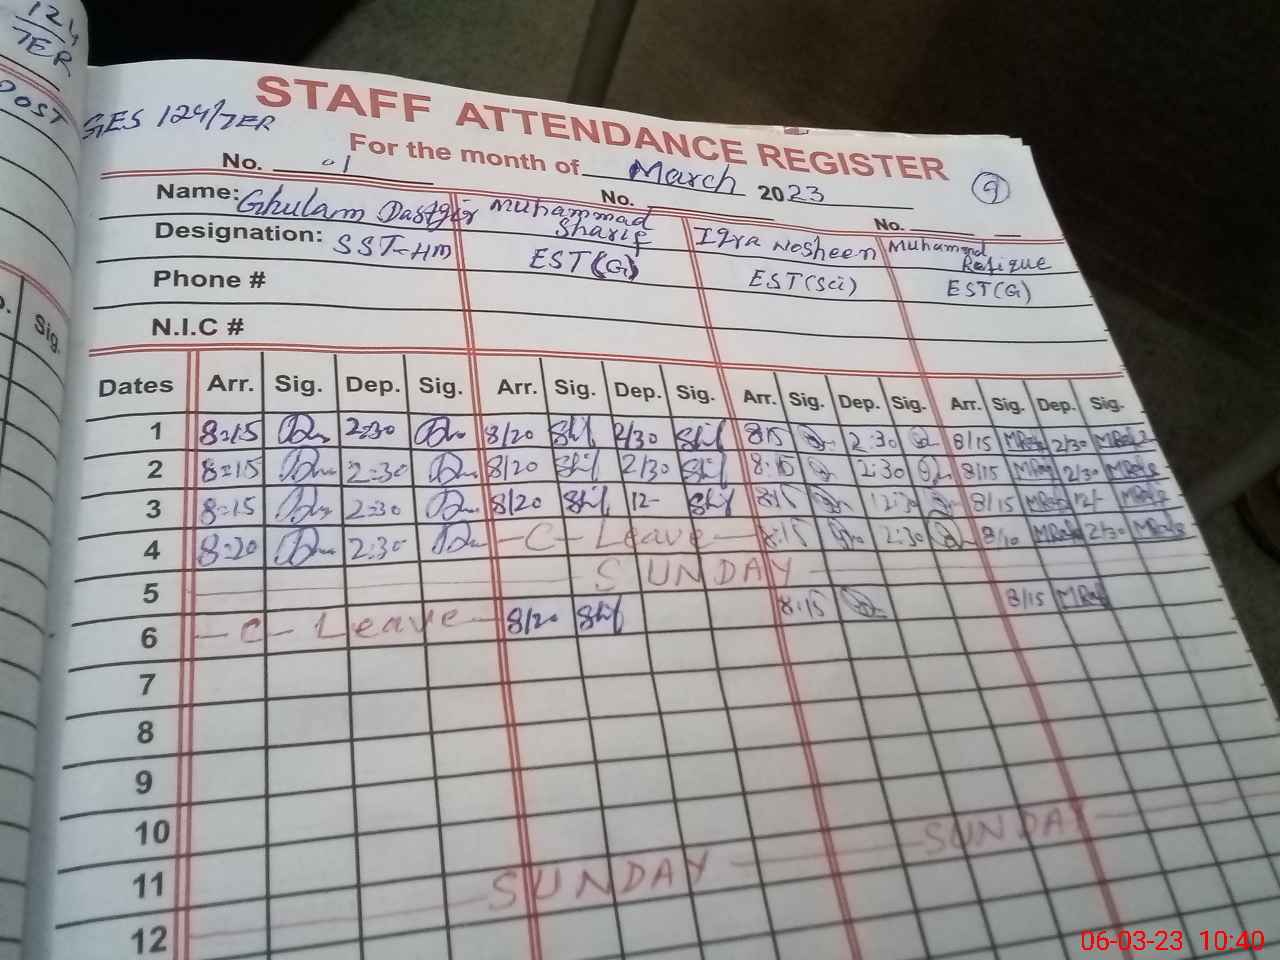 124
TER
POST
Sig.
STAFF ATTENDANCE REGISTER
GES 124/7ER
For the month of March 2023
9
No. 01 No. No.
Name: Ghulam Dastgir Muhammad Sharif Iqra Nosheen Muhammad Rafique
Designation: SST-HM EST(G) EST(Sci) EST(G)
Phone #
N.I.C #
Dates Arr. Sig. Dep. Sig. Arr. Sig. Dep. Sig. Arr. Sig. Dep. Sig. Arr. Sig. Dep. Sig.
1 8:15 2:30 8/20 2/30 8:15 2:30 8/15 2/30
2 8:15 2:30 8/20 2/30 8:15 2:30 8/15 2/30
3 8:15 2:30 8/20 12- 8:15 12:30 8/15 12/-
4 8:20 2:30 -C- Leave- 8:15 2:30 8/10 2/30
5 SUNDAY
6 -C- Leave- 8/20 8:15 8/15
7
8
9
10
11
12 SUNDAY SUNDAY
06-03-23 10:40